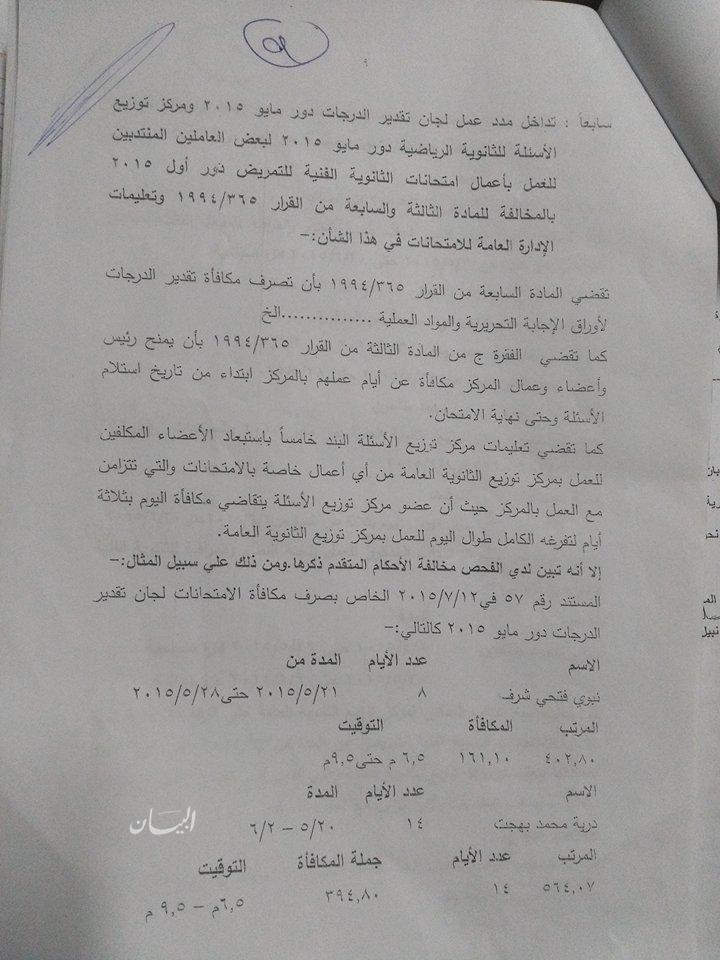 ٩
سابعاً : تداخل مدد عمل لجان تقدير الدرجات دور مايو ٢٠١٥ ومركز توزيع
الأسئلة للثانوية الرياضية دور مايو ٢٠١٥ لبعض العاملين المنتدبين
للعمل بأعمال امتحانات الثانوية الفنية للتمريض دور أول ٢٠١٥
بالمخالفة للمادة الثالثة والسابعة من القرار ١٩٩٤/٣٦٥ وتعليمات
الإدارة العامة للامتحانات في هذا الشأن:-
تقضي المادة السابعة من القرار ١٩٩٤/٣٦٥ بأن تصرف مكافأة تقدير الدرجات
لأوراق الإجابة التحريرية والمواد العملية ...............الخ
كما تقضي الفقرة ج من المادة الثالثة من القرار ١٩٩٤/٣٦٥ بأن يمنح رئيس
وأعضاء وعمال المركز مكافأة عن أيام عملهم بالمركز ابتداء من تاريخ استلام
الأسئلة وحتى نهاية الامتحان.
كما تقضي تعليمات مركز توزيع الأسئلة البند خامساً باستبعاد الأعضاء المكلفين
للعمل بمركز توزيع الثانوية العامة من أي أعمال خاصة بالامتحانات والتي تتزامن
مع العمل بالمركز حيث أن عضو مركز توزيع الأسئلة يتقاضي مكافأة اليوم بثلاثة
أيام لتفرغه الكامل طوال اليوم للعمل بمركز توزيع الثانوية العامة.
إلا أنه تبين لدي الفحص مخالفة الأحكام المتقدم ذكرها.ومن ذلك علي سبيل المثال:-
المستند رقم ٥٧ في٢٠١٥/٧/١٢ الخاص بصرف مكافأة الامتحانات لجان تقدير
الدرجات دور مايو ٢٠١٥ كالتالي:-
الاسم عدد الأيام المدة من
نبوي فتحي شرف ٨ ٢٠١٥/٥/٢١ حتى٢٠١٥/٥/٢٨
المرتب المكافأة التوقيت
٤٠٢,٨٠ ١٦١,١٠ ٦,٥ م حتى٩,٥م
الاسم عدد الأيام المدة
درية محمد بهجت ١٤ ٥/٢٠ – ٦/٢
المرتب عدد الأيام جملة المكافأة التوقيت
٥٦٤,٠٧ ١٤ ٣٩٤,٨٠ ٦,٥م – ٩,٥ م
البيان